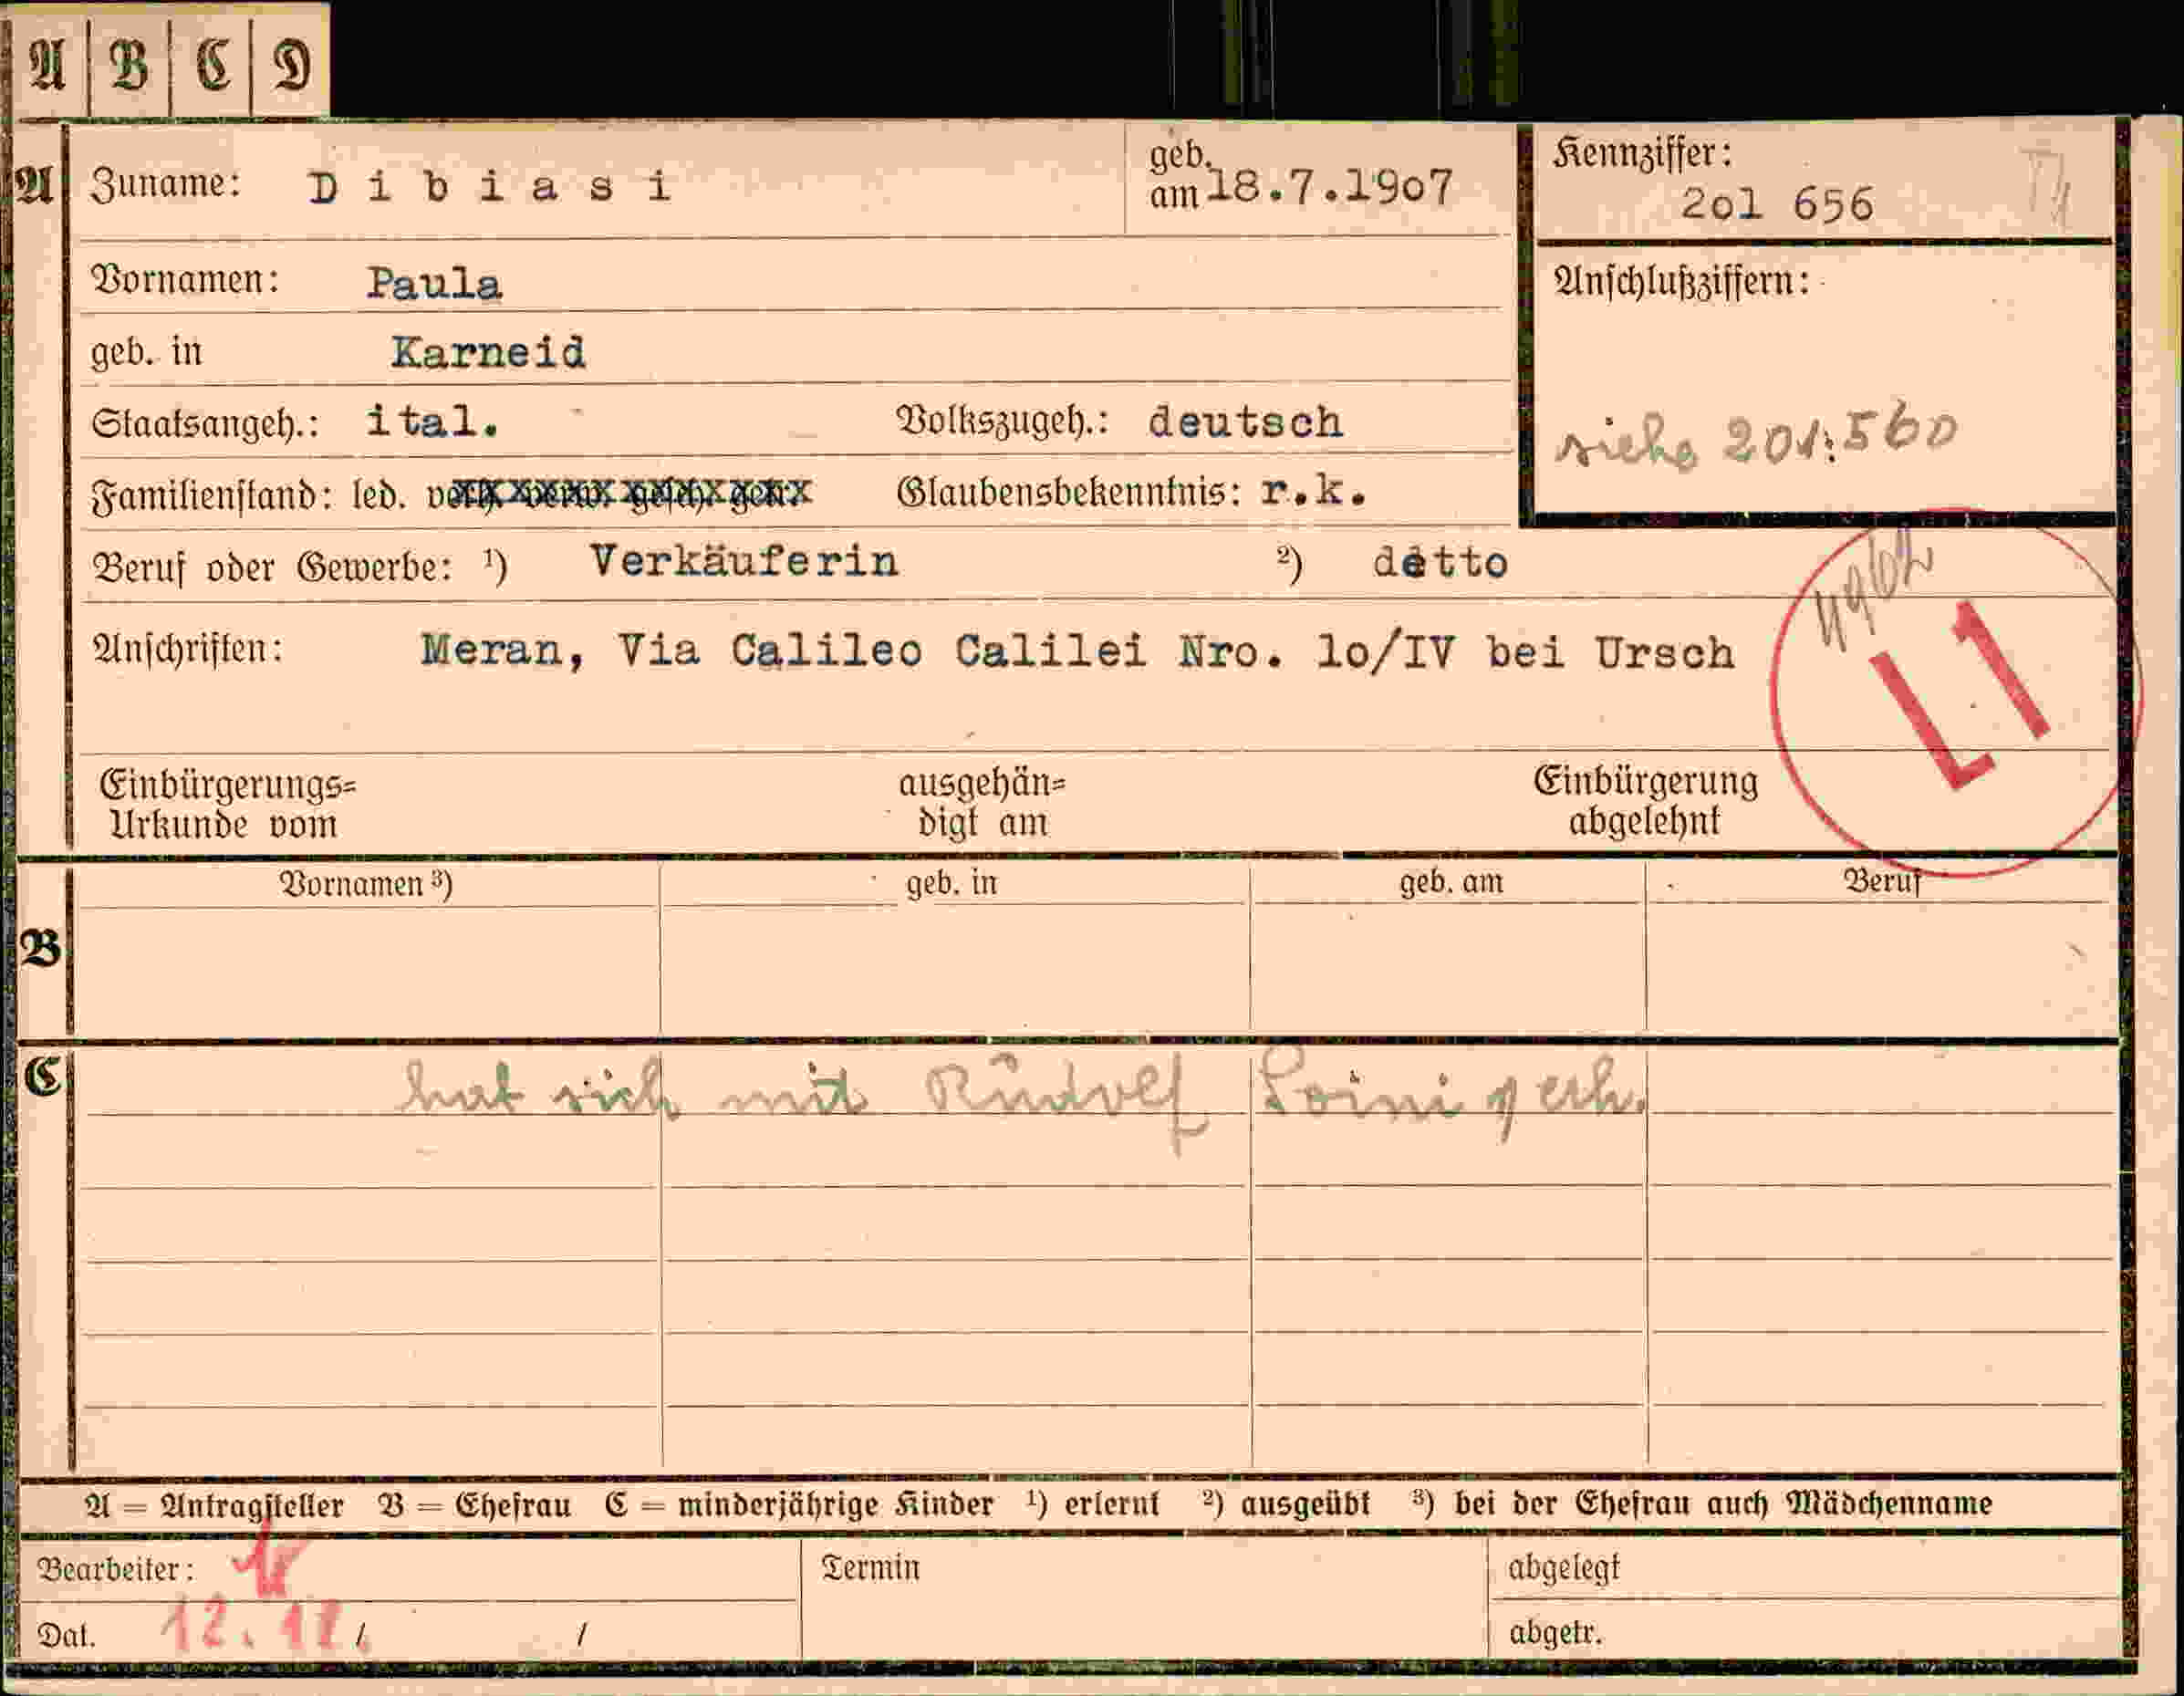 A B C D
A Zuname: Dibiasi geb. am 18.7.19o7 Kennziffer: 2o1 656
Vornamen: Paula Anschlußziffern:
geb. in Karneid
Staatsangeh.: ital. Volkszugeh.: deutsch siehe 201:560
Familienstand: led. verh. verw. gesch. getr. Glaubensbekenntnis: r.k.
Beruf oder Gewerbe: 1) Verkäuferin 2) detto
Anschriften: Meran, Via Calileo Calilei Nro. 1o/IV bei Ursch
L1
Einbürgerungs= Urkunde vom ausgehän= digt am Einbürgerung abgelehnt
Vornamen 3) geb. in geb. am Beruf
B
C hat sich mit Rudolf verh.
A = Antragsteller B = Ehefrau C = minderjährige Kinder 1) erlernt 2) ausgeübt 3) bei der Ehefrau auch Mädchenname
Bearbeiter: Termin abgelegt
Dat. 12. / / abgetr.